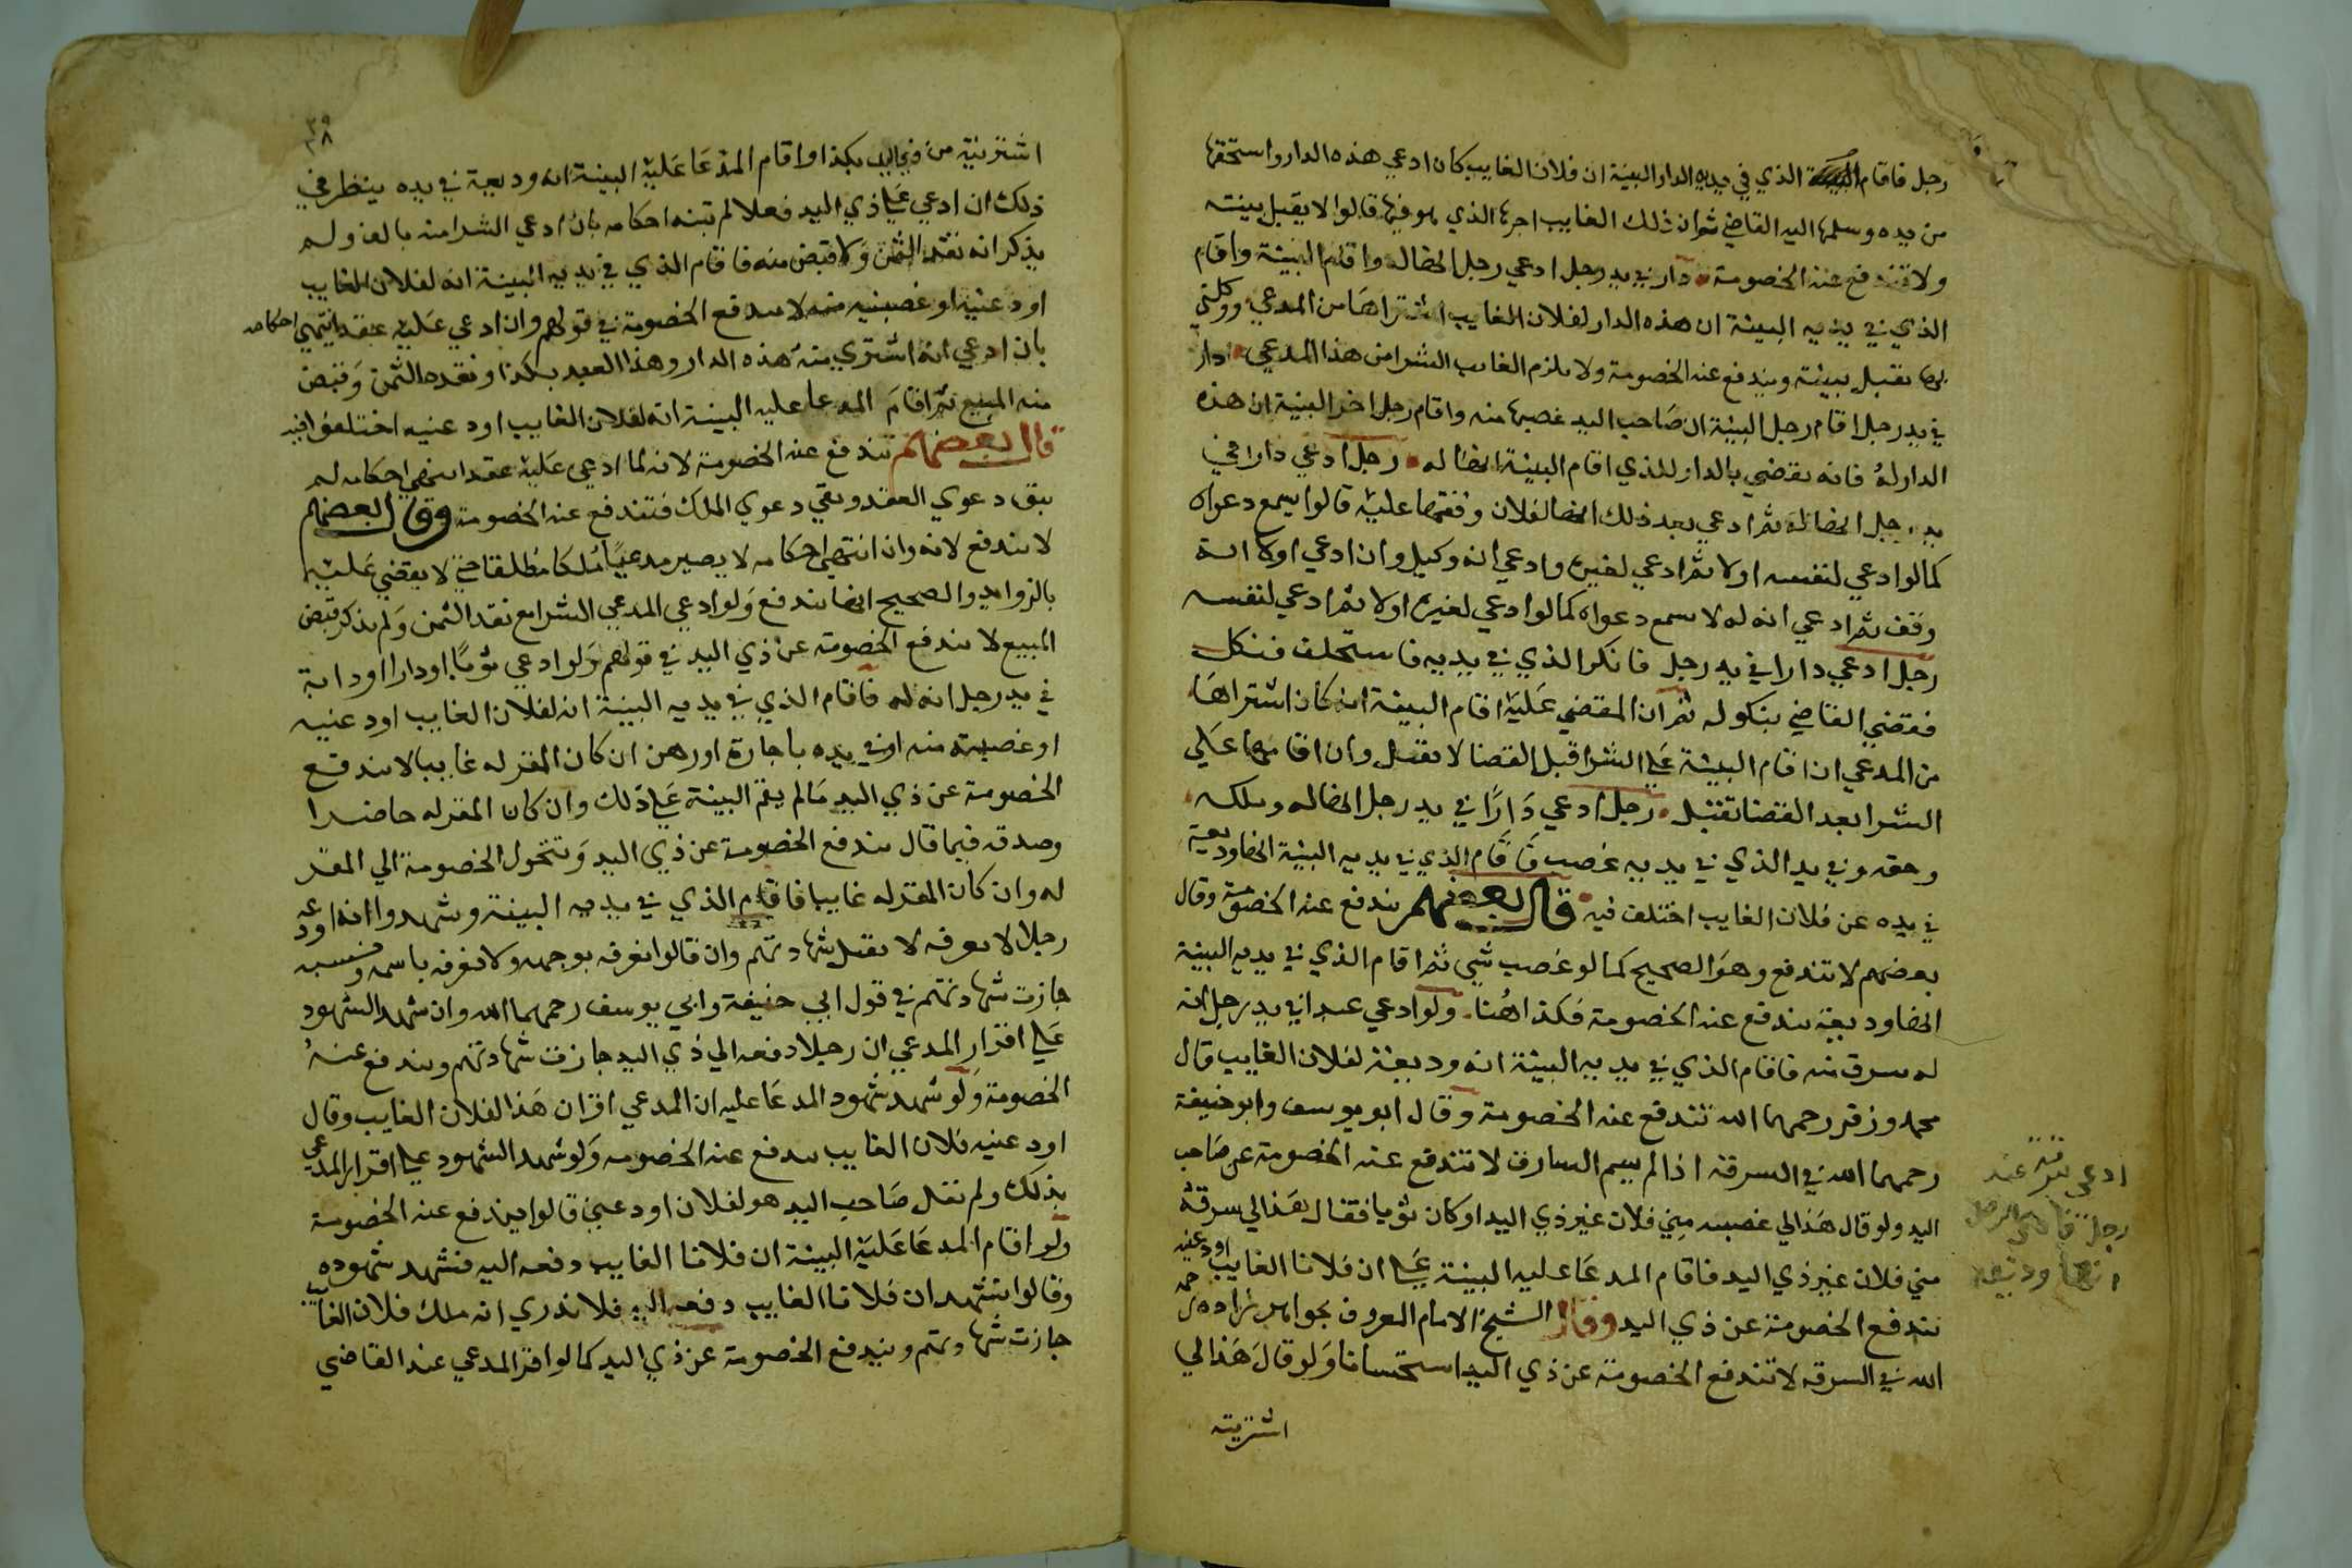 رجل فاقام الذي في يديه الدار البينة ان فلان الغايب كان ادعي هذه الدار واستحقها
من يده وسلمها اليه القاضي ثم ان ذلك الغايب اجرها الذي هو فيها قالوا لا يقبل بينته
ولا تندفع عنه الخصومة دار في يد رجل ادعي رجل انها له واقام البينة واقام
الذي في يديه البينة ان هذه الدار لفلان الغايب اشتراها من المدعي ووكلني
بها تقبل بينته ويندفع عنه الخصومة ولا يلزم الغايب الشرا من هذا المدعي دار
في يد رجل اقام رجل البينة ان صاحب اليد غصبها منه واقام رجل اخر البينة ان هذه
الدار له فانه يقضي بالدار للذي اقام البينة انها له رجل ادعي دارا في
يد رجل انها له ثم ادعي بعد ذلك انها لفلان وقفها عليه قالوا يسمع دعواه
كما لو ادعي لنفسه اولا ثم ادعي لغيره وادعي انه وكيل وان ادعي اولا انه
وقف ثم ادعي انه له لا يسمع دعواه كما لو ادعي لغيره اولا ثم ادعي لنفسه
رجل ادعي دارا في يد رجل فانكر الذي في يديه فاستحلف فنكل
فقضي القاضي بنكوله ثم ان المقضي عليه اقام البينة انه كان اشتراها
من المدعي ان اقام البينة علي الشرا قبل القضا لا تقبل وان اقامها علي
الشرا بعد القضا تقبل رجل ادعي دارا في يد رجل انها له وملكه
وحقه وفي يد الذي في يديه غصب فاقام الذي في يديه البينة انها وديعة
في يده عن فلان الغايب اختلف فيه قال بعضهم يندفع عنه الخصومة وقال
بعضهم لا تندفع وهو الصحيح كما لو غصب شي ثم اقام الذي في يديه البينة
انها وديعة يندفع عنه الخصومة فكذا هنا ولو ادعي عبدا في يد رجل انه
له سرق منه فاقام الذي في يديه البينة انه وديعة لفلان الغايب قال
محمد وزفر رحمهما الله تندفع عنه الخصومة وقال ابو يوسف وابو حنيفة
رحمهما الله في السرقة اذا لم يسم السارق لا تندفع عنه الخصومة عن صاحب
اليد ولو قال هذا لي غصبه مني فلان غير ذي اليد او كان ثوبا فقال هذا لي سرقة
مني فلان غير ذي اليد فاقام المدعا عليه البينة علي ان فلانا الغايب اودعنيه
تندفع الخصومة عن ذي اليد وقال الشيخ الامام المعروف بخواهر زاده رحمه
الله في السرقة لا تندفع الخصومة عن ذي اليد استحسانا ولو قال هذا لي
اشتريته
ادعي سرقة عند
رجل
انها وديعة
٣٨
اشتريته من فلان الغايب بكذا واقام المدعا عليه البينة انه وديعة في يده ينظر في
ذلك ان ادعي علي ذي اليد فعلا لم تنته احكامه بان ادعي الشرا منه بالف ولم
يذكر انه نقد الثمن ولا قبض منه فاقام الذي في يديه البينة انه لفلان الغايب
اودعنيه او غصبنيه منه لا يندفع الخصومة في قولهم وان ادعي عليه عقدا انتهي احكامه
بان ادعي انه اشتري منه هذه الدار وهذا العبد بكذا ونقده الثمن وقبض
منه المبيع ثم اقام المدعا عليه البينة انه لفلان الغايب اودعنيه اختلفوا فيه
قال بعضهم تندفع عنه الخصومة لانه لما ادعي عليه عقدا انتهي احكامه لم
يبق دعوي العقد وبقي دعوي الملك فتندفع عنه الخصومة وقال بعضهم
لا يندفع لانه وان انتهي احكامه لا يصير مدعيا ملكا مطلقا حتي لا يقضي عليه
بالزوايد والصحيح انها يندفع ولو ادعي المدعي الشرا مع نقد الثمن ولم يذكر قبض
المبيع لا يندفع الخصومة عن ذي اليد في قولهم ولو ادعي ثوبا او دارا او دابة
في يد رجل انه له فاقام الذي في يديه البينة انه لفلان الغايب اودعنيه
او غصبته منه او في يده باجارة او رهن ان كان المقر له غايبا لا يندفع
الخصومة عن ذي اليد ما لم يقم البينة علي ذلك وان كان المقر له حاضرا
وصدقه فيما قال يندفع الخصومة عن ذي اليد وتتحول الخصومة الي المقر
له وان كان المقر له غايبا فاقام الذي في يديه البينة وشهدوا انه اودعه
رجل لا يعرفه لا يقبل شهادتهم وان قالوا نعرفه بوجهه ولا نعرفه باسمه ونسبه
جازت شهادتهم في قول ابي حنيفة وابي يوسف رحمهما الله وان شهد الشهود
علي اقرار المدعي ان رجلا دفعه الي ذي اليد جازت شهادتهم ويندفع عنه
الخصومة ولو شهد شهود المدعا عليه ان المدعي اقر ان هذا لفلان الغايب وقال
اودعنيه فلان الغايب يندفع عنه الخصومه ولو شهد الشهود علي اقرار المدعي
بذلك ولم نقل صاحب اليد هو لفلان اودعني قالوا يندفع عنه الخصومة
ولو اقام المدعا عليه البينة ان فلانا الغايب دفعه اليه فشهد شهوده
وقالوا نشهد ان فلانا الغايب دفعه اليه فلا ندري انه ملك فلان الغايب
جازت شهادتهم ويندفع الخصومة عن ذي اليد كما لو اقر المدعي عند القاضي